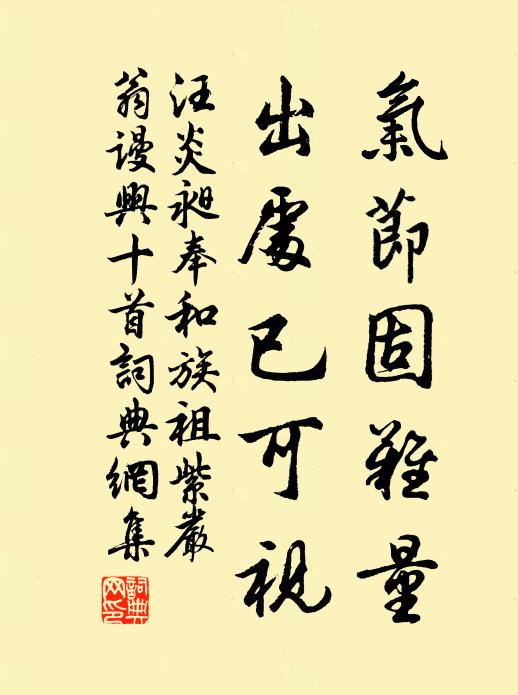 氣節固難量
出處已可視
汪炎昶奉和族祖紫巖
翁謾興十首詞典網集
詞典網印